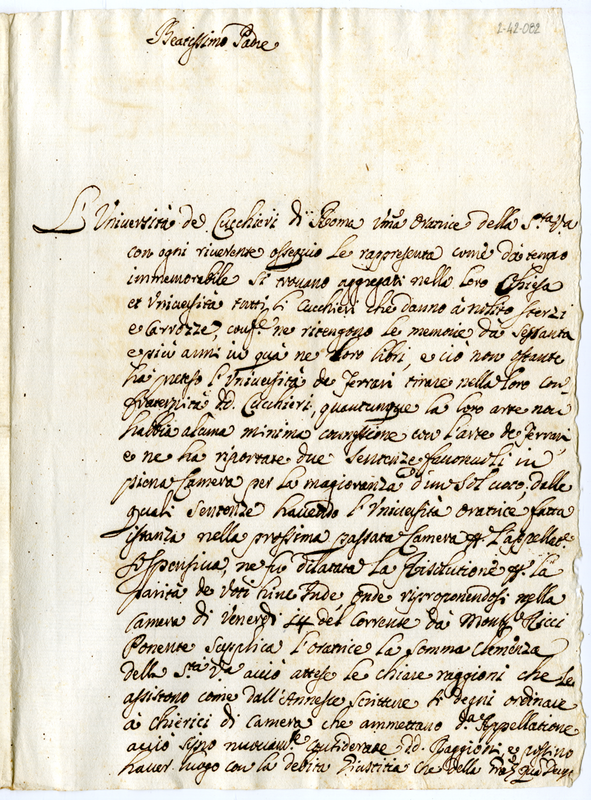 2-42-082
Beatissimo Padre
L'Università de Cucchieri di Roma um.ᵃ Oratrice della S.ᵗᵃ V.ᵃ
con ogni riverente ossequio le rappresenta come da tempo
immemorabile si trovano aggregati nella loro Chiesa
et Università tutti li Cucchieri che danno à nolito sterzi
e Carrozze, conf.ᵉ ne ritengono le memorie da Sessanta
e più anni in quà ne loro libri, e ciò non ostante
hà preteso l'Università de Ferrari tirare nella loro con=
fraternità dd. Cucchieri, quantunque la loro arte non
habbia alcuna minima connessione con l'arte de Ferrari
e ne ha riportate due sentenze favorevoli in
piena Camera per la maggioranza d'un sol voto, dalle
quali sentenze havendo l'Università Oratrice fatta
istanza nella prossima passata Camera l'appellaᵉ
suspensiva, ne fù dilatata la Risolutione la
parità de Voti hinc inde, onde riproponendosi nella
Camera di Venerdi 14 del Corrente da Mons.ʳ Ricci
Ponente supplica l'oratrice la somma Clemenza
della S.ᵗᵃ V.ᵃ acciò attese le chiare raggioni che le
assistono come dall'Annesse Scritture si degni ordinare
à Chierici di Camera che ammettano d.ᵃ Appellatione
acciò siano nuovam.ᵗᵉ Considerate dd. Raggioni, e possino
haver luogo con la debita Giustitia che della